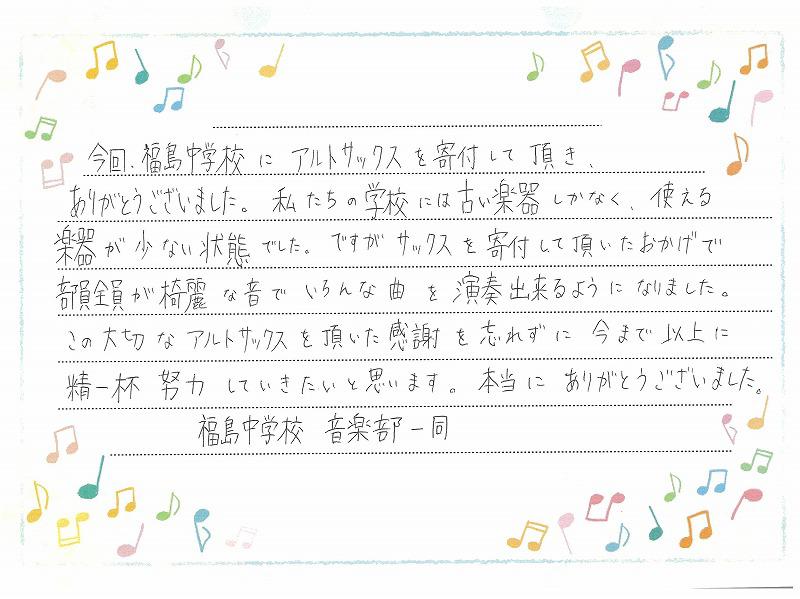 今回、福島中学校にアルトサックスを寄付して頂き、
ありがとうございました。私たちの学校には古い楽器しかなく、使える
楽器が少ない状態でした。ですがサックスを寄付して頂いたおかげで
部員全員が綺麗な音でいろんな曲を演奏出来るようになりました。
この大切なアルトサックスを頂いた感謝を忘れずに今まで以上に
精一杯努力していきたいと思います。本当にありがとうございました。
福島中学校 音楽部一同